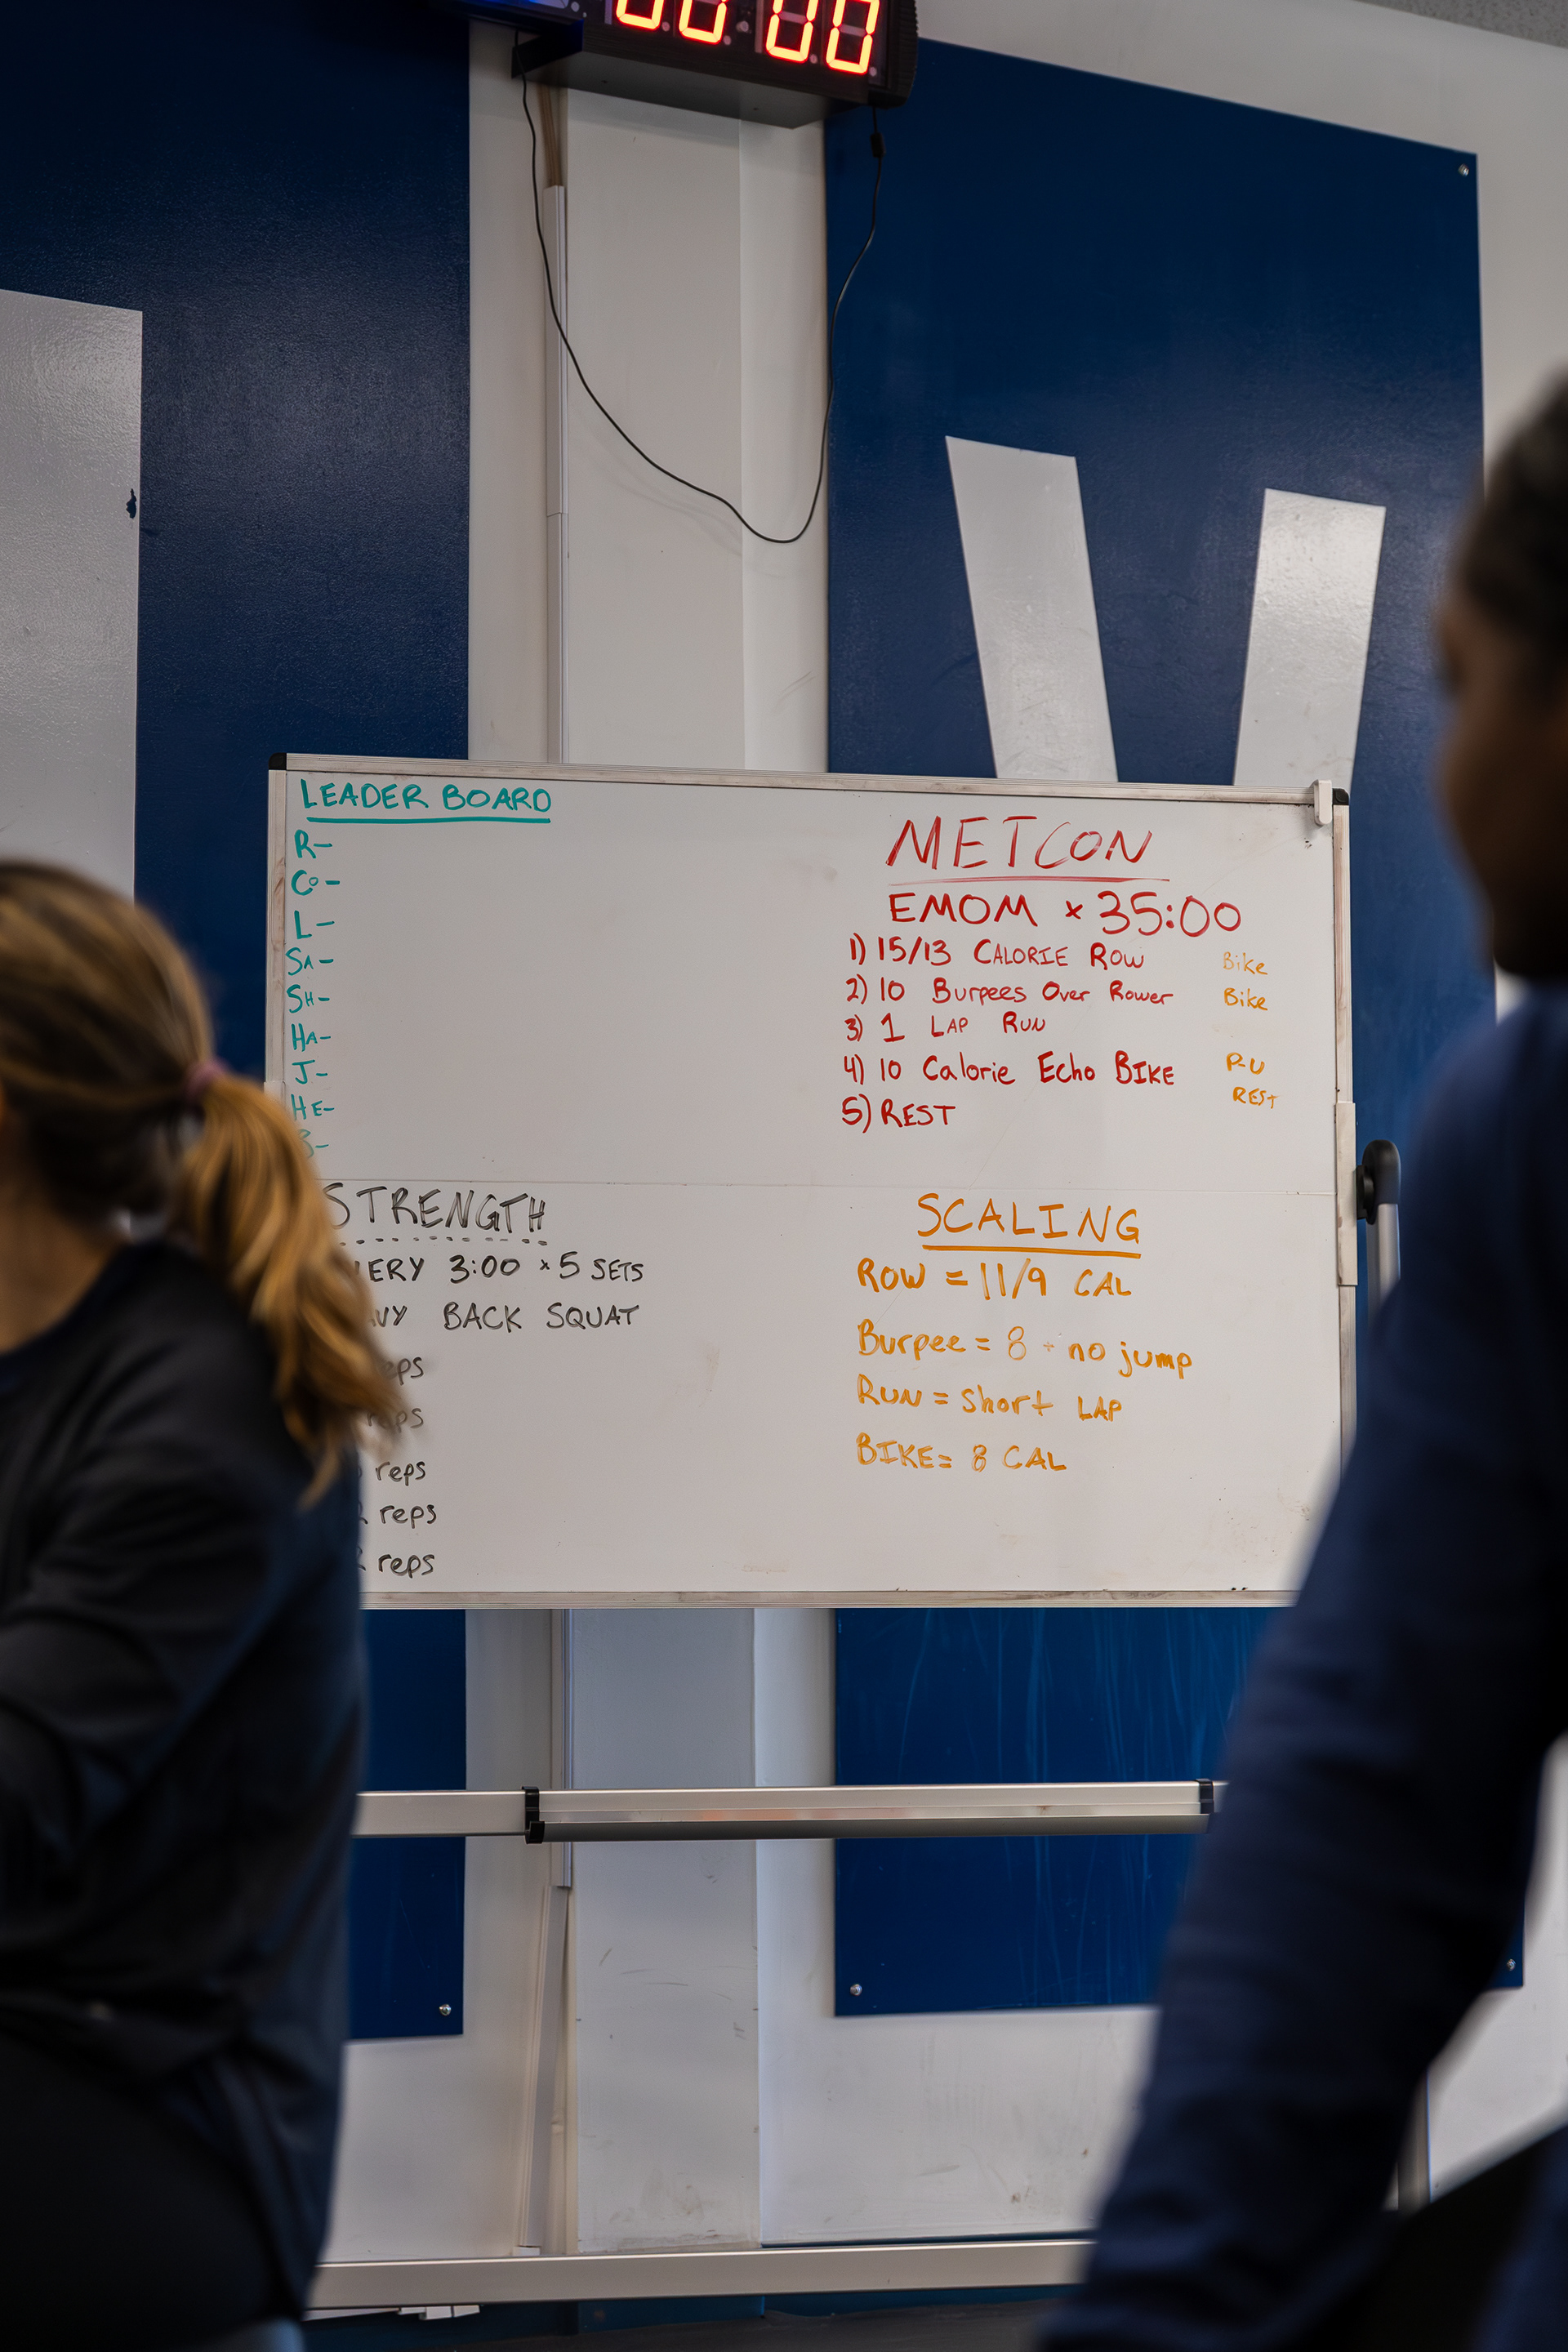 00:00
LEADER BOARD
R-
Co-
L-
SA-
SH-
HA-
J-
HE-
B-
METCON
EMOM x 35:00
1) 15/13 CALORIE ROW Bike
2) 10 Burpees Over Rower Bike
3) 1 LAP RUN
4) 10 Calorie Echo BIKE
REST
5) REST
STRENGTH
3:00 x 5 SETS
BACK SQUAT
reps
reps
reps
2 reps
2 reps
SCALING
ROW = 11/9 CAL
Burpee = 8 - no jump
RUN = short LAP
BIKE = 8 CAL
V